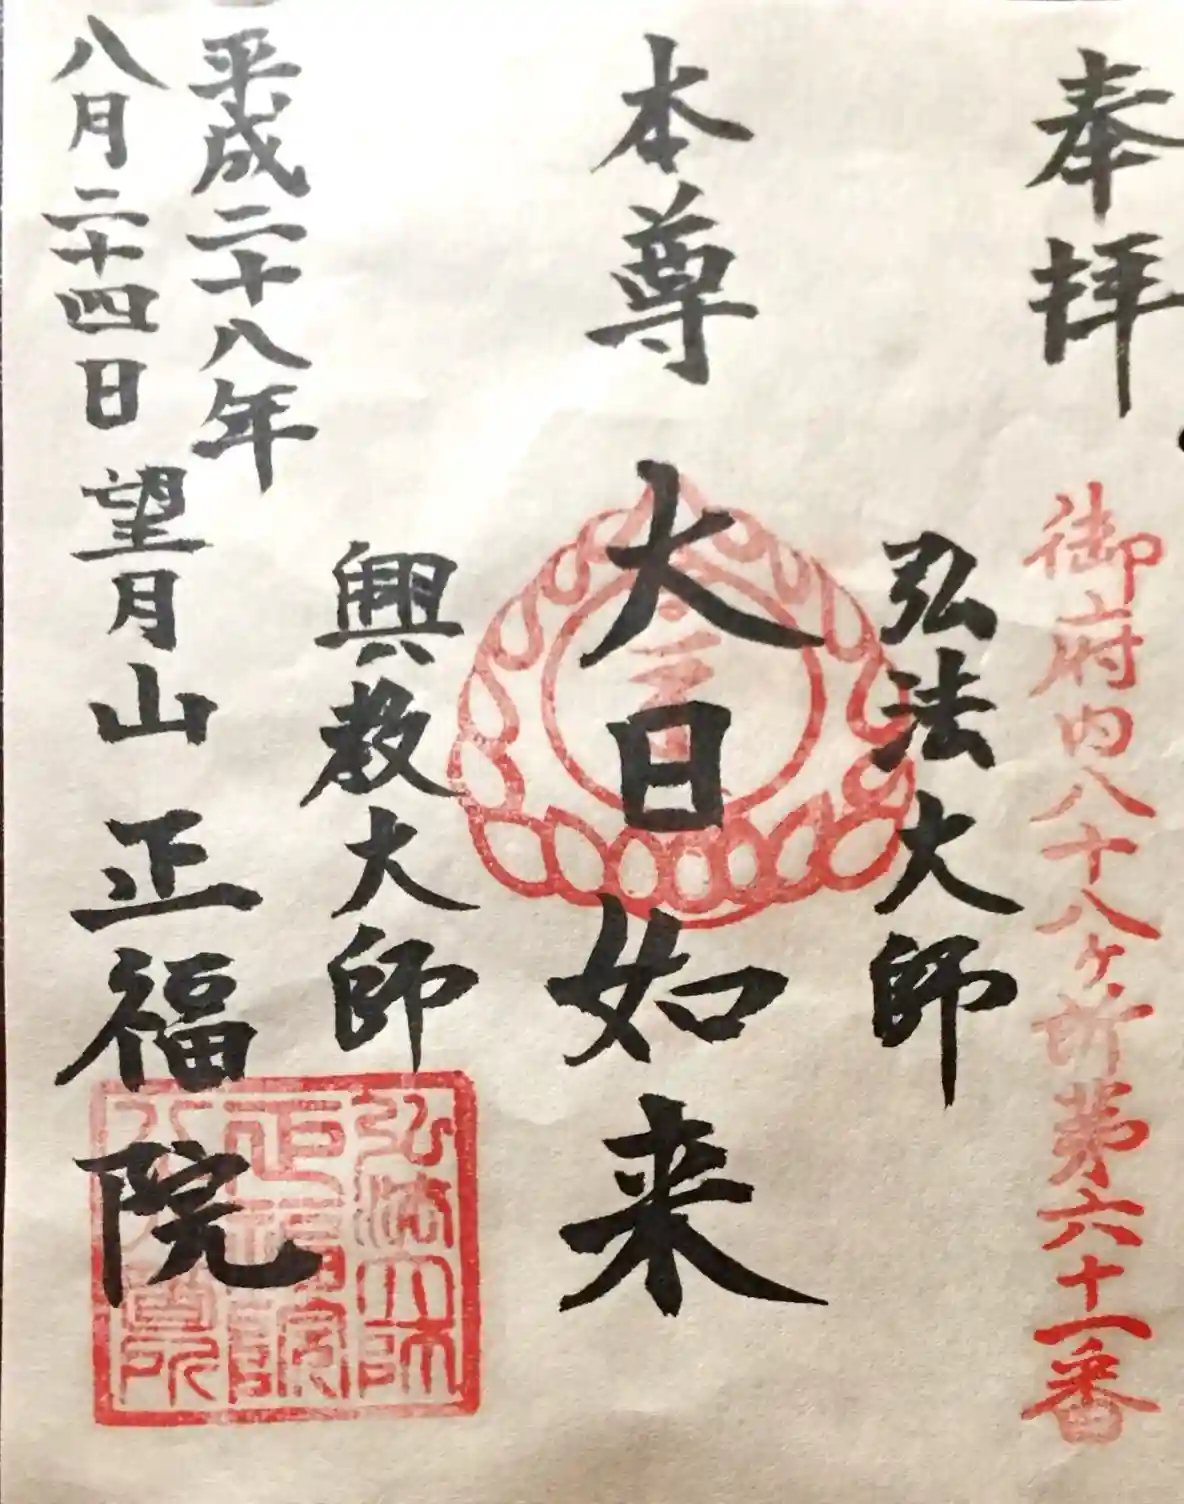 奉拝
御府内八十八ヶ所第六十一番
弘法大師
本尊 大日如来
興教大師
平成二十八年
八月二十四日 望月山 正福院
弘法大師
正福院